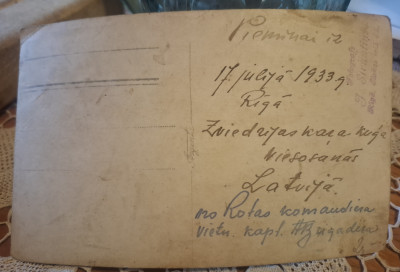 Piemiņai iz
17 jūlijā 1933 g
Rīgā
Zviedrijas kaŗa kuģa
viesošanās
Latvijā.
no Rotas komandiera
vietn. kapt.